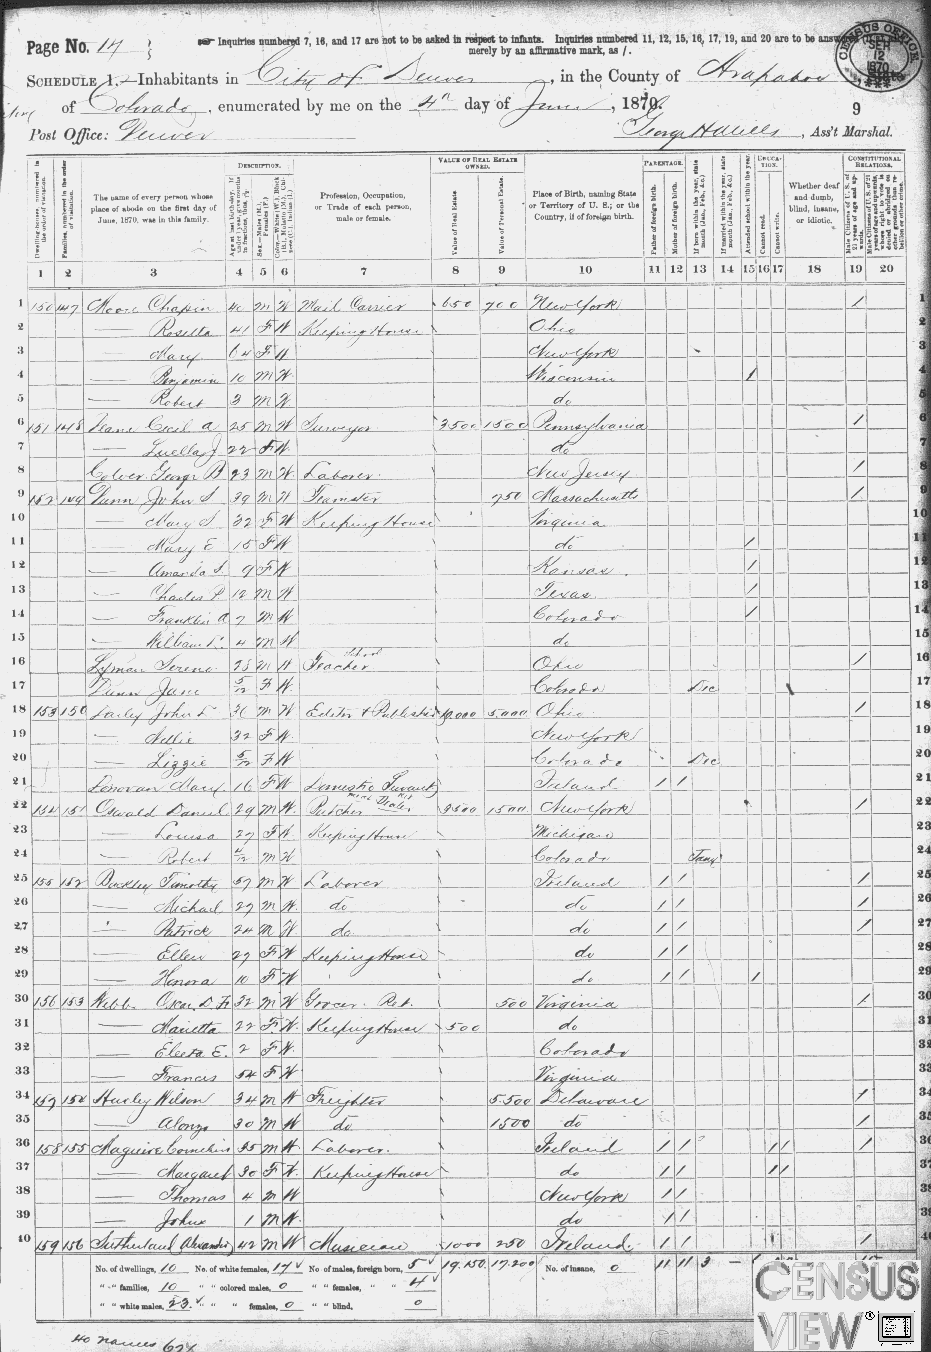 Page No. 17
Inquiries numbered 7, 16, and 17 are not to be asked in respect to infants. Inquiries numbered 11, 12, 15, 16, 17, 19, and 20 are to be answered
merely by an affirmative mark, as /.
CENSUS OFFICE SEP 12 1870
SCHEDULE 1.—Inhabitants in City of Denver, in the County of Arapahoe, State
of Colorado, enumerated by me on the 4th day of June, 1870.
9
Post Office: Denver
George H Wells, Ass't Marshal.
Dwelling-houses, numbered in the order of visitation.
Families, numbered in the order of visitation.
The name of every person whose place of abode on the first day of June, 1870, was in this family.
DESCRIPTION.
Profession, Occupation, or Trade of each person, male or female.
VALUE OF REAL ESTATE OWNED.
Value of Real Estate.
Value of Personal Estate.
Place of Birth, naming State or Territory of U. S.; or the Country, if of foreign birth.
PARENTAGE.
Father of foreign birth.
Mother of foreign birth.
If born within the year, state month (Jan., Feb., &c.)
If married within the year, state month (Jan., Feb., &c.)
Attended school within the year.
EDUCATION.
Cannot read.
Cannot write.
Whether deaf and dumb, blind, insane, or idiotic.
CONSTITUTIONAL RELATIONS.
1 2 3 4 5 6 7 8 9 10 11 12 13 14 15 16 17 18 19 20
1 150 147 Moore Chapin 40 M W Mail Carrier 650 700 New York / 1
2 — Rosetta 41 F W Keeping House Ohio 2
3 — Mary 64 F W New York 3
4 — Benjamin 10 M W Wisconsin / 4
5 — Robert 3 M W do 5
6 151 148 Deane Cecil A 25 M W Surveyor 3500 1500 Pennsylvania / 6
7 — Luella J 22 F W do 7
8 Colver George B 23 M W Laborer New Jersey / 8
9 152 149 Dunn John S 39 M W Teamster 250 Massachusetts / 9
10 — Mary S 32 F W Keeping House Virginia 10
11 — Mary E 15 F W do / 11
12 — Amanda S 9 F W Kansas / 12
13 — Charles P 12 M W Texas / 13
14 — Franklin A 7 M W Colorado / 14
15 — William 4 M W do 15
16 Lyman 23 M W School Teacher Ohio / 16
17 Dunn Jane 5/12 F W Colorado Dec 17
18 153 150 Dailey John L 36 M W Editor & Publisher 10,000 5000 Ohio / 18
19 — Nellie 32 F W New York 19
20 — Lizzie 5/12 F W Colorado Dec 20
21 Donovan Mary 16 F W Domestic Servant Ireland / / 21
22 154 151 Oswald Daniel 29 M W Butcher Dealer 3500 1500 New York / 22
23 — Louisa 27 F W Keeping House Michigan 23
24 — Robert 4/12 M W Colorado Jany 24
25 155 152 Buckley Timothy 57 M W Laborer Ireland / / / 25
26 — Michael 27 M W do do / / / 26
27 — Patrick 24 M W do do / / / 27
28 — Ellen 27 F W Keeping House do / / 28
29 — Honora 10 F W do / / / 29
30 156 153 Webb 32 M W Grocer Ret. 500 Virginia / 30
31 — Marietta 22 F W Keeping House 500 do 31
32 — E. 2 F W Colorado 32
33 — Frances 54 F W Virginia 33
34 157 154 Hurley Wilson 34 M W Freighter 5500 Delaware / 34
35 — Alonzo 30 M W do 1500 do / 35
36 158 155 Maguire Cornelius 35 M W Laborer Ireland / / / / / 36
37 — Margaret 30 F W Keeping House do / / / / 37
38 — Thomas 4 M W New York / / 38
39 — John 1 M W do / / 39
40 159 156 Sutherland Alexander 42 M W Musician 1000 250 Ireland / / / 40
No. of dwellings, 10 No. of white females, 17 No. of males, foreign born, 5 19,150 17,200 No. of insane, 0 11 11 3
" " families, 10 " " colored males, 0 " " females, " 4
" " white males, 23 " " " females, 0 " " blind, 0
40 names
CENSUS
VIEW®